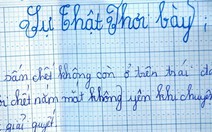 Sự Thật Phơi bày ;
bắn chết không còn ở trên trái đ
chết nằm mắt không yên khi chuyện
giải quyết